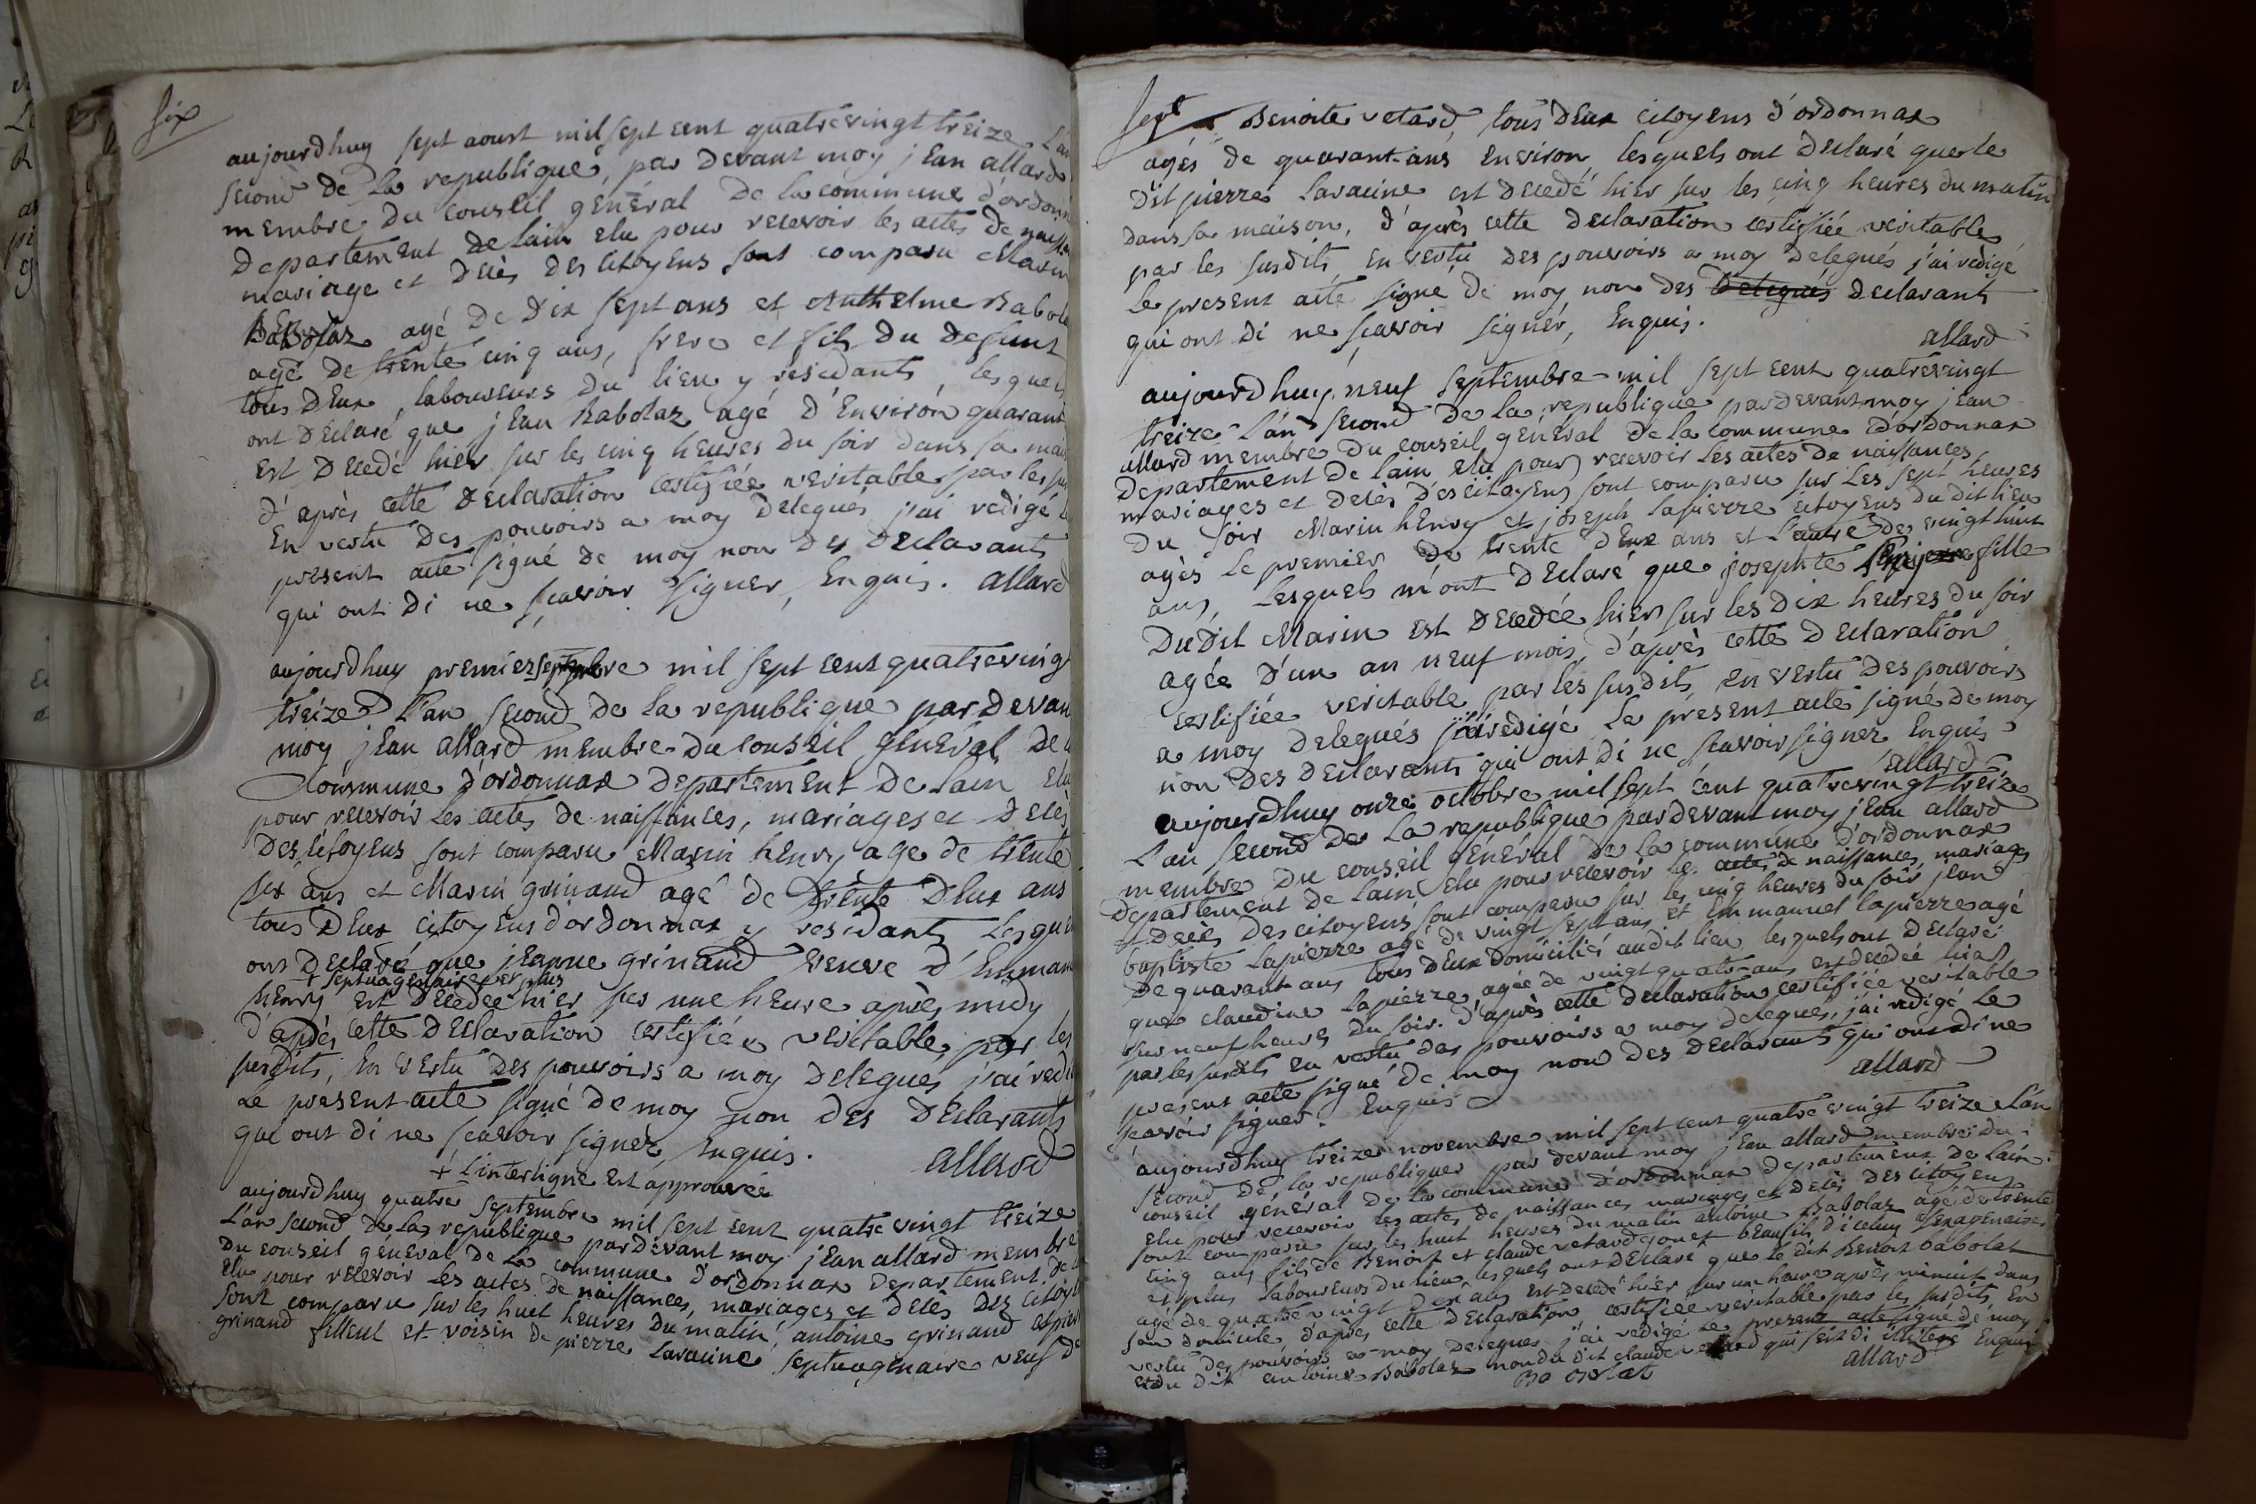 six
aujourdhuy sept aoust mil sept cent quatrevingt treize L'an
second de la republique, par devant moy jean allard
membre du conseil général de la commune d'ordon
departement de lain elu pour recevoir les actes de naissa
mariage et decès des citoyens sont comparu Marin
Babolaz agé de dix sept ans et Anthelme Babola
agé de trente cinq ans, frere et fils du defunt
tous deux, laboureurs du lieu y residants, lesquels
ont declaré que jean Babolaz agé d'environ quarant
est decedé hier sur les cinq heures du soir dans sa mais
d'après cette declaration certifiée veritable par les su
En vertu des pouvoirs a moy delegués j'ai redigé l
present acte signé de moy non des declarants
qui ont di ne scavoir signer, Enquis. allard
aujourdhuy premier septembre mil sept cent quatreving
treize L'an second de la republique par devan
moy jean allard membre du conseil general de l
Commune d'ordonnax departement de lain elu
pour recevoir les actes de naissances, mariages et decès
des citoyens sont comparu Marin henry age de trente
six ans et Marin grinand agé de trente deux ans
tous deux citoyens d'ordonnax y residants Lesque
ont declaré que jeanne grinand veuve d'Emman
+ septuagenaire et plus
henry est decedée hier sur une heure après midy
d'après cette declaration certifiée veritable, par les
susdits, En vertu des pouvoirs a moy delegués j'ai redi
Le present acte signé de moy non des declarants
qui ont di ne scavoir signer, Enquis.
+ L'interligne est approuvée allard
aujourdhuy quatre septembre mil sept cent quatre vingt treize
L'an second de la republique par devant moy jean allard membre
du conseil général de la commune d'ordonnax departement de l
elu pour recevoir les actes de naissances, mariages et decès des citoye
sont comparu sur les huit heures du matin, antoine grinand
grinand filleul et voisin de pierre Lavacine septuagenaire veuf de
sept
Benoite vetard, tous deux citoyens d'ordonnax
agés de quarant-ans environ lesquels ont declaré que le
dit pierre Lavacine est decedé hier sur les cinq heures du matin
dans sa maison, d'après cette declaration certifiée veritable
par les susdits, en vertu des pouvoirs a moy delegués j'ai redigé
le present acte signé de moy non des delegués declarants
qui ont di ne scavoir signer, Enquis.
allard
aujourdhuy neuf septembre mil sept cent quatrevingt
treize L'an second de la republique par devant moy jean
allard membre du conseil général de la commune d'ordonnax
departement de lain elu pour recevoir les actes de naissances
mariages et decès des citoyens sont comparu sur les sept heures
du soir Marin henry et joseph lapierre citoyens du dit lieu
agés Le premier de trente deux ans et L'autre des vingt huit
ans, Lesquels m'ont declaré que josephte fille
Dudit Marin est decedée hier sur les dix heures du soir
agée d'un an neuf mois, d'après cette declaration
certifiée veritable par les susdits, en vertu des pouvoirs
a moy delegués j'ai redigé Le présent acte signé de moy
non des declarants qui ont di ne scavoir signer Enquis
allard
aujourdhuy onze octobre mil sept cent quatrevingt treize
L'an second de la republique par devant moy jean allard
membre du conseil général de la commune d'ordonnax
departement de lain elu pour recevoir les actes de naissances, mariages
et decès des citoyens, sont comparu sur les cinq heures du soir jean
baptiste lapierre agé de vingt sept ans et Emmanuel lapierre agé
de quarant ans tous deux domiciliés audit lieu, lesquels ont declaré
que claudine lapierre, agée de vingt quatre ans est decedée hier
sur neuf heures du soir. d'après cette declaration certifiée veritable
par les susdits en vertu des pouvoirs a moy delegués, j'ai redigé Le
present acte signé de moy non des declarants qui ont di ne
scavoir signer. Enquis
allard
aujourdhuy treize novembre mil sept cent quatre vingt treize L'an
second de la republique par devant moy jean allard membre du
conseil général de la commune d'ordonnax departement de lain
elu pour recevoir les actes de naissances mariages et decès des citoyens
sont comparu sur les huit heures du matin antoine Babolaz agé de trente
cinq ans fils de Benoit et claude vetard son beaufils d'iceluy sexagenaire
et plus laboureurs du lieu lesquels ont declaré que le dit Benoit babolat
agé de quatre vingt dix ans est decedé hier sur une heure après minuit dans
son domicile, d'après cette declaration certifiée veritable par les susdits, En
vertu des pouvoirs a moy delegués j'ai redigé Le present acte signé de moy
et du dit antoine Babolaz non du dit claude vetard qui s'est di Enquis
Babolat allard